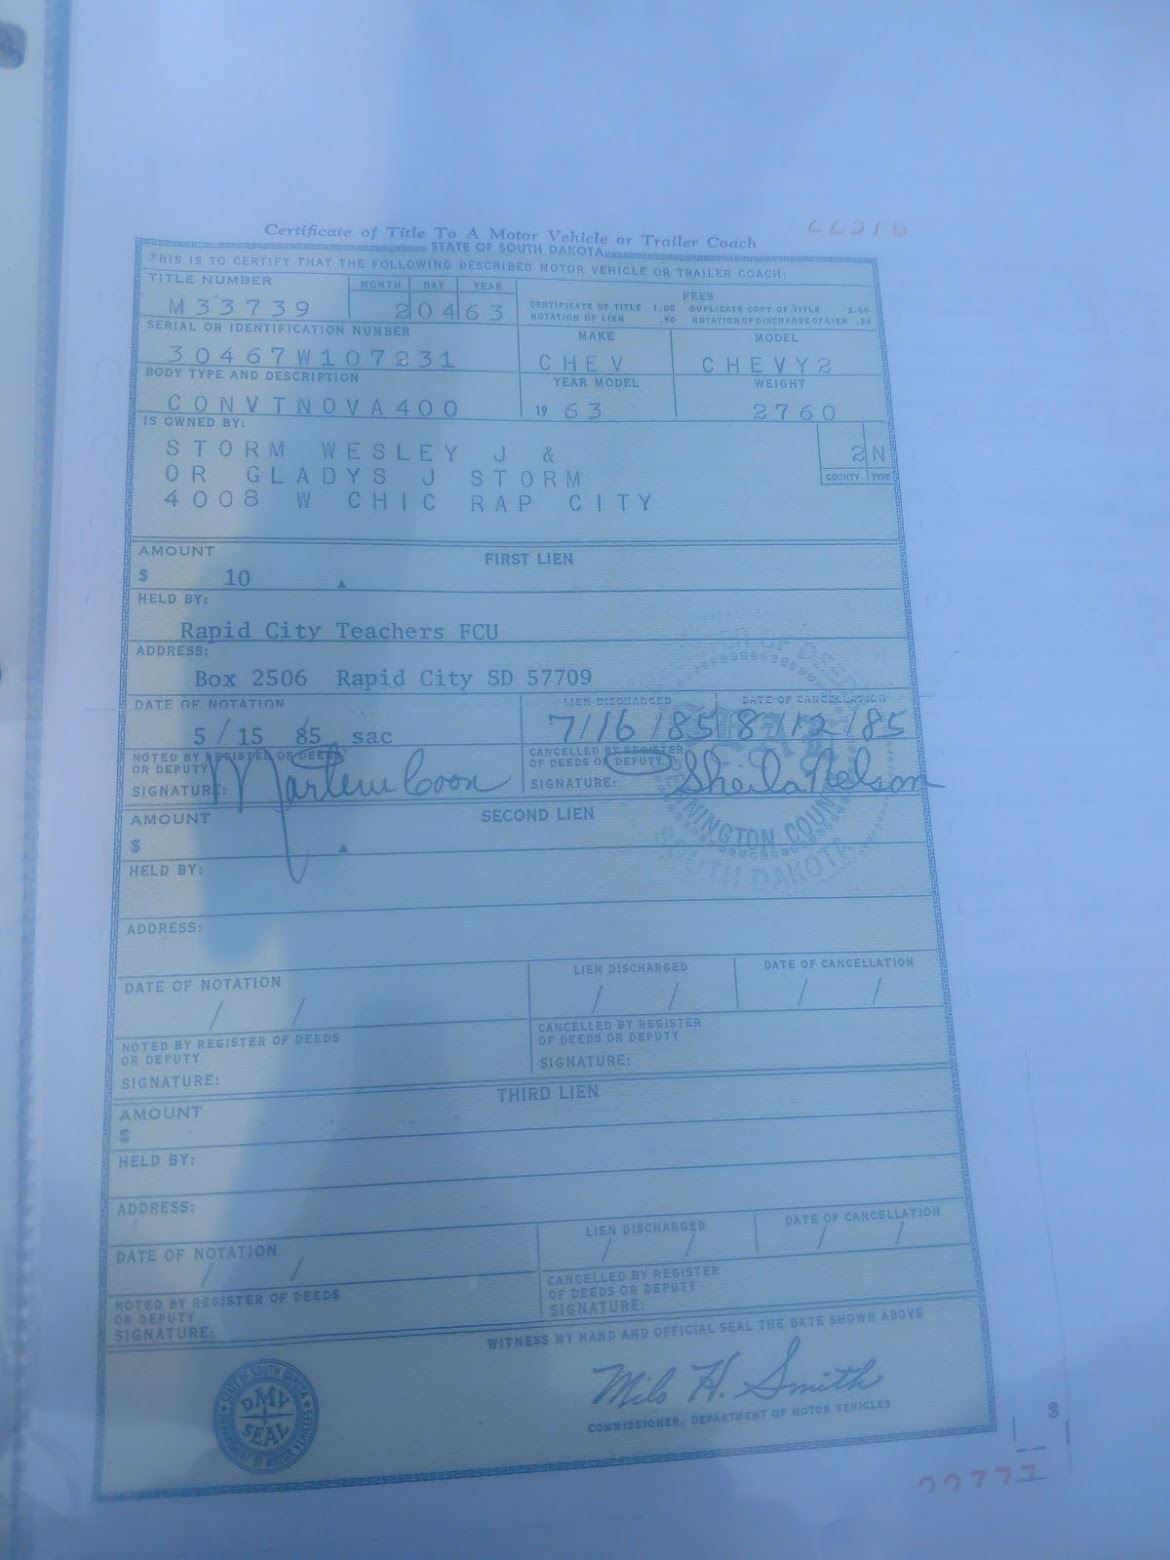 Certificate of Title To A Motor Vehicle or Trailer Coach
STATE OF SOUTH DAKOTA
THIS IS TO CERTIFY THAT THE FOLLOWING DESCRIBED MOTOR VEHICLE OR TRAILER COACH:
TITLE NUMBER MONTH DAY YEAR FEES
M33739 2 04 63 CERTIFICATE OF TITLE 1.00 DUPLICATE COPY OF TITLE 2.00
NOTATION OF LIEN .50 NOTATION OF DISCHARGE OF LIEN .25
SERIAL OR IDENTIFICATION NUMBER MAKE MODEL
30467W107231 CHEV CHEVY2
BODY TYPE AND DESCRIPTION YEAR MODEL WEIGHT
CONVTNOVA400 19 63 2760
IS OWNED BY:
STORM WESLEY J &
OR GLADYS J STORM
4008 W CHIC RAP CITY
2 N
COUNTY TYPE
AMOUNT FIRST LIEN
$ 10
HELD BY:
Rapid City Teachers FCU
ADDRESS:
Box 2506 Rapid City SD 57709
DATE OF NOTATION LIEN DISCHARGED DATE OF CANCELLATION
5 / 15 85 sac 7/16/85 8/12/85
NOTED BY REGISTER OF DEEDS CANCELLED BY REGISTER
OR DEPUTY OF DEEDS OR DEPUTY
SIGNATURE: Marlene Coon SIGNATURE: Sheila Nelson
PENNINGTON COUNTY
SOUTH DAKOTA
AMOUNT SECOND LIEN
$
HELD BY:
ADDRESS:
DATE OF NOTATION LIEN DISCHARGED DATE OF CANCELLATION
/ / / / / /
NOTED BY REGISTER OF DEEDS CANCELLED BY REGISTER
OR DEPUTY OF DEEDS OR DEPUTY
SIGNATURE: SIGNATURE:
THIRD LIEN
AMOUNT
$
HELD BY:
ADDRESS:
DATE OF NOTATION LIEN DISCHARGED DATE OF CANCELLATION
/ / / / / /
NOTED BY REGISTER OF DEEDS CANCELLED BY REGISTER
OR DEPUTY OF DEEDS OR DEPUTY
SIGNATURE: SIGNATURE:
WITNESS MY HAND AND OFFICIAL SEAL THE DATE SHOWN ABOVE
Milo H. Smith
COMMISSIONER, DEPARTMENT OF MOTOR VEHICLES
STATE OF SOUTH DAKOTA
DMV
SEAL
DEPARTMENT OF MOTOR VEHICLES
$